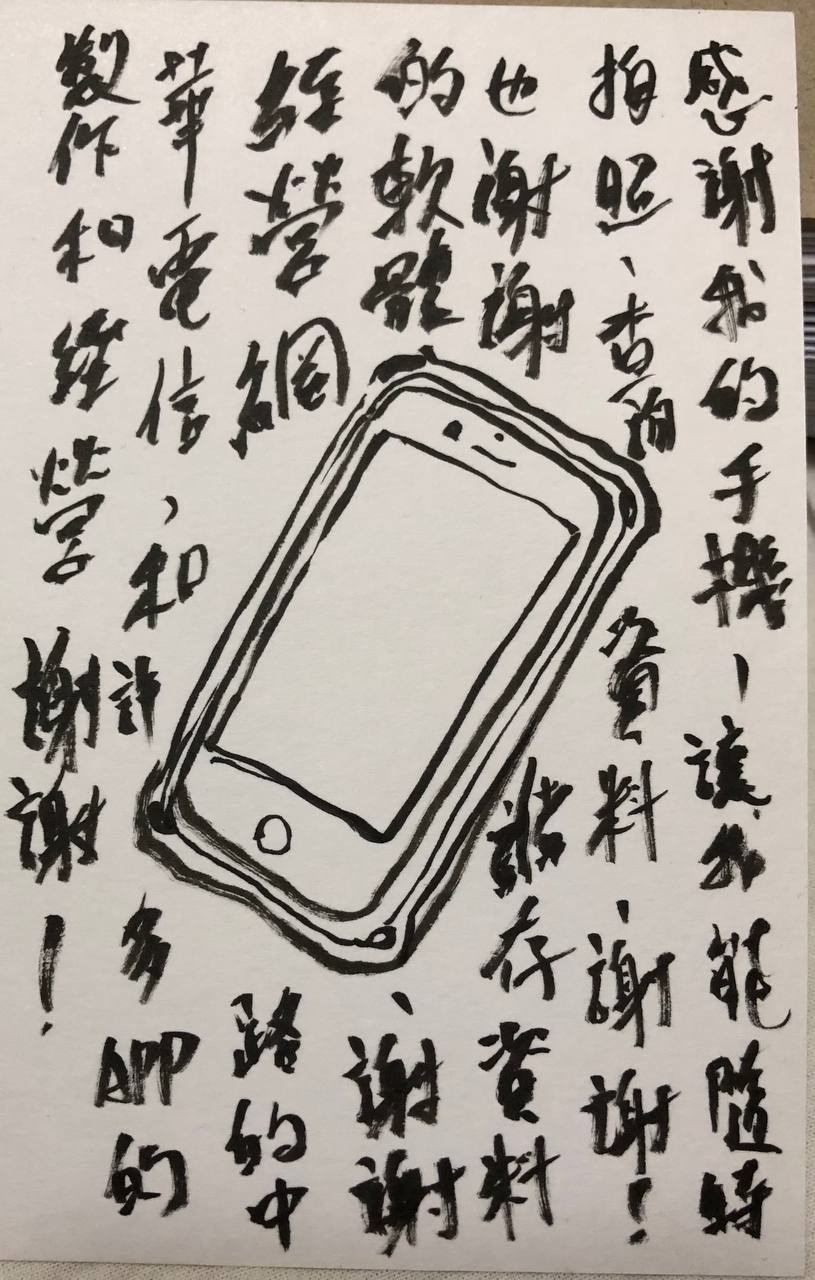 感謝我的手機、讓我能隨時
拍照、查詢資料、謝謝!
也謝謝儲存資料
的軟體、謝謝
經營網路的中
華電信、和許多APP的
製作和經營謝謝!